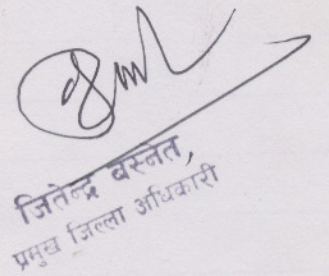 जितेन्द्र बस्नेत,
प्रमुख जिल्ला अधिकारी